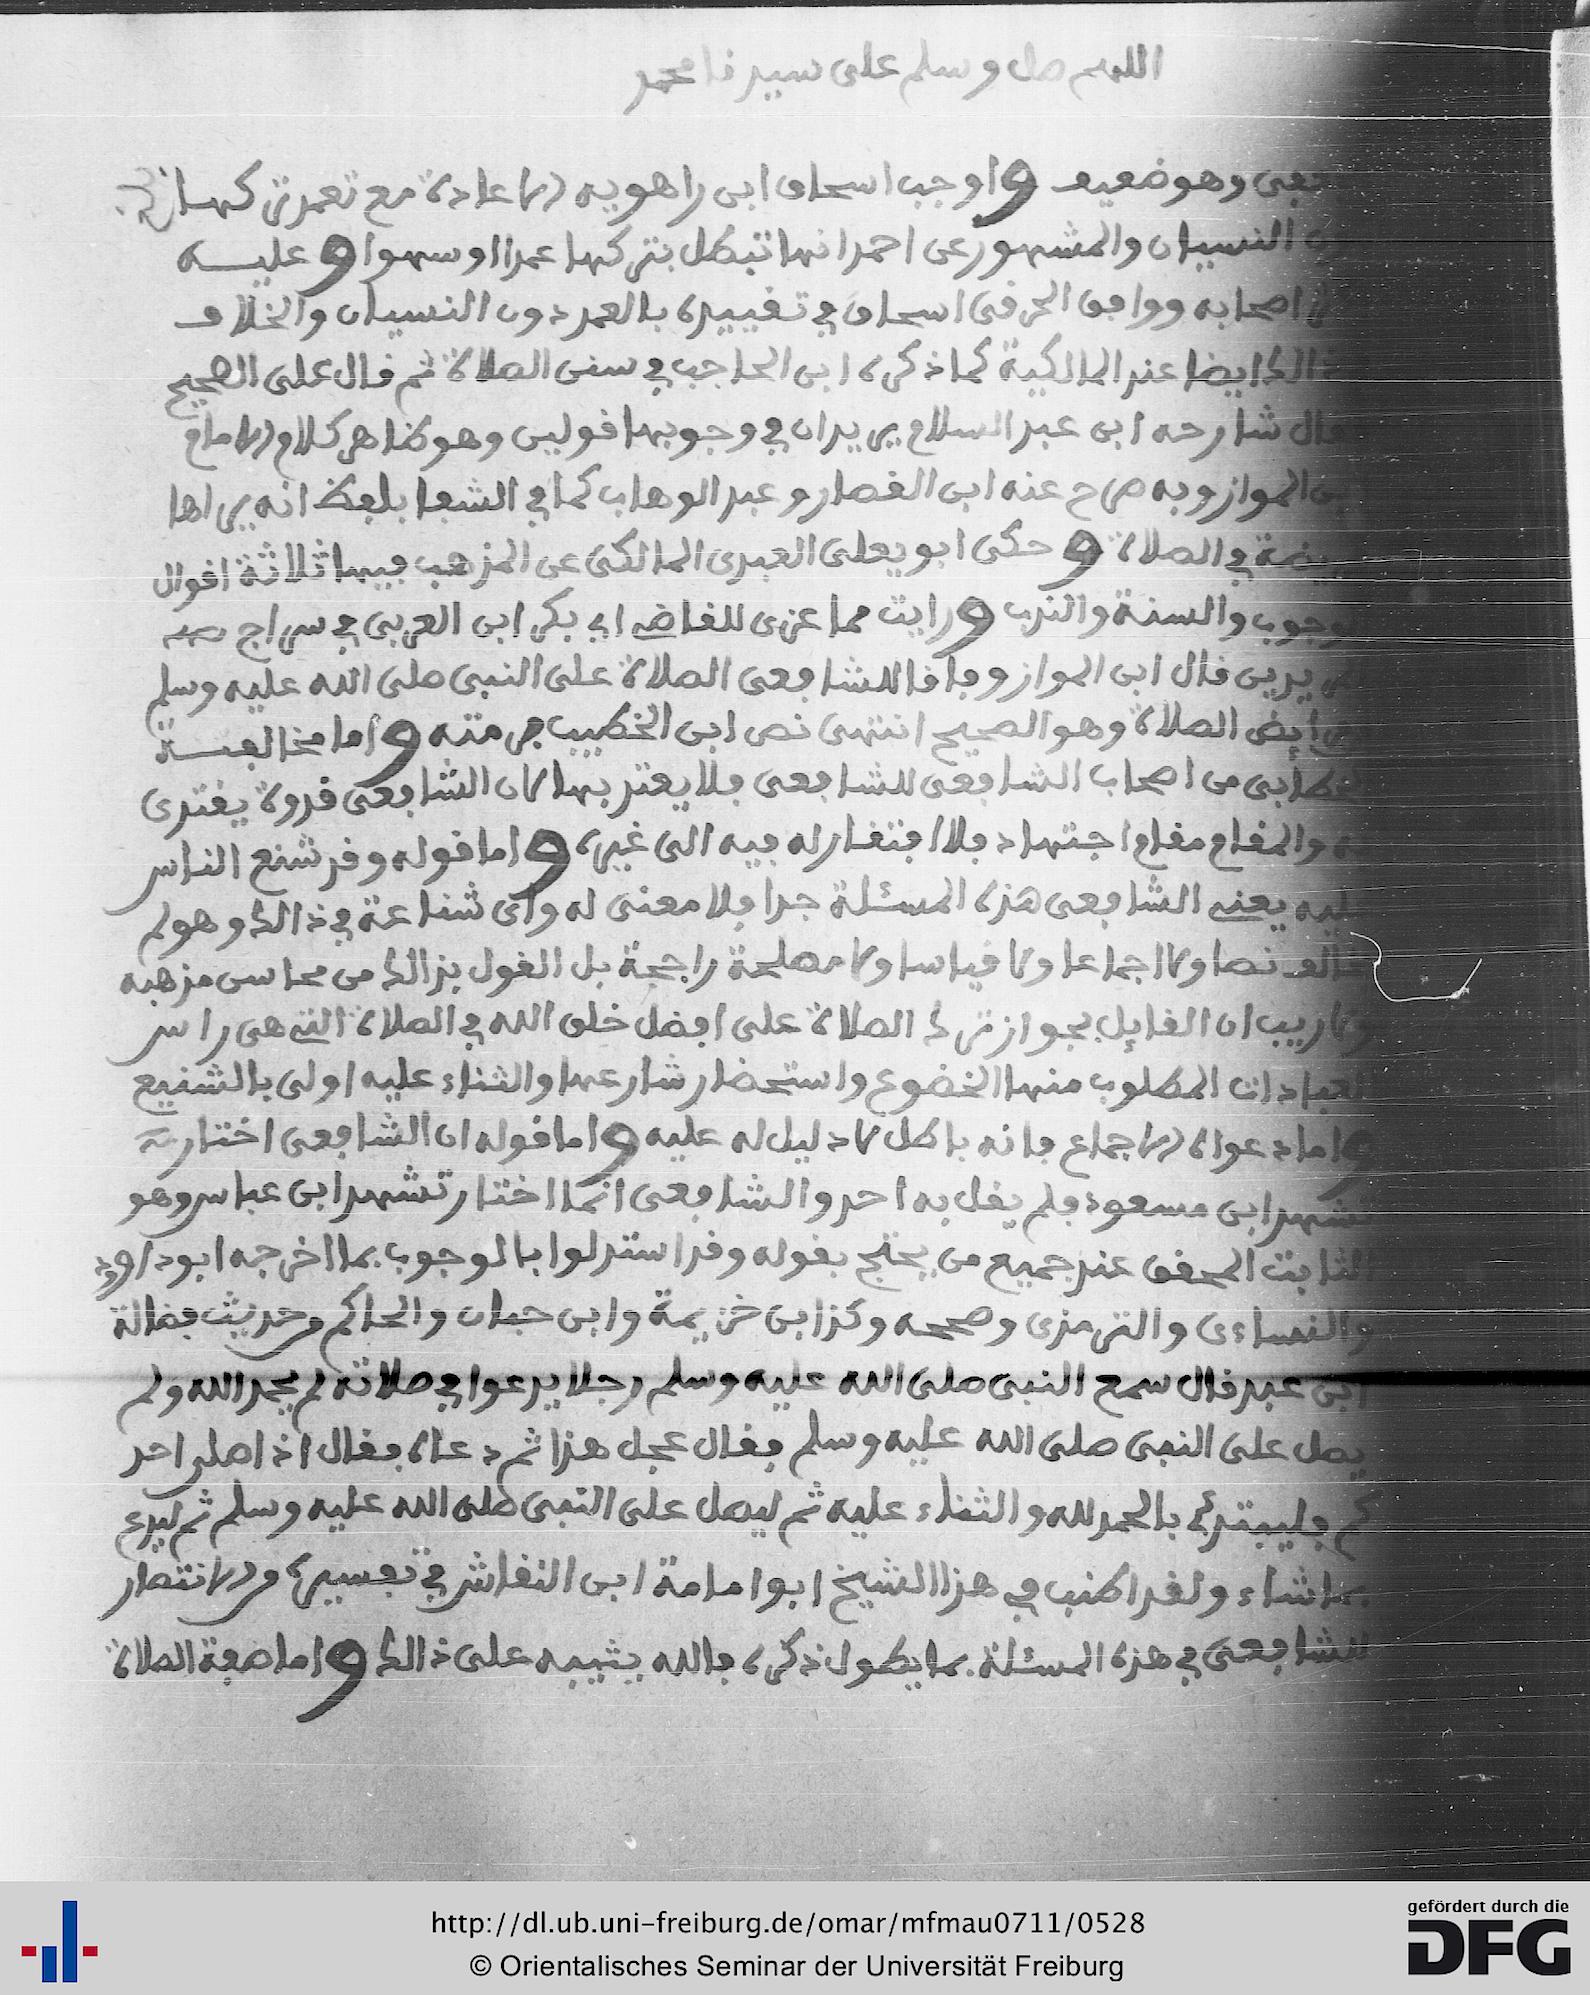 اللهم صل وسلم على سيدنا محمد
وهو ضعيف واوجب اسحاق ابن راهويه الاعادة مع تعمد تركها
النسيان والمشهور عن احمد انها تبطل بتركها عمدا او سهوا وعليه
اصحابه ووافق الخرقى اسحاق في تقييده بالعمد دون النسيان والخلاف
ايضا عند المالكية كما ذكره ابن الحاجب في سنن الصلاة ثم قال على الصحيح
شارحه ابن عبد السلام يريد ان في وجوبها قولين وهو ظاهر كلام الامام
ابن المواز وبه صرح عنه ابن القصار وعبد الوهاب كما في الشفا بلفظ انه يراها
في الصلاة وحكى ابو يعلى العبدى المالكى عن المذهب فيها ثلاثة اقوال
الوجوب والسنة والندب ورايت مما عزى للقاضى ابي بكر ابن العربى في سراج
المريدين قال ابن المواز وبما قال الشافعى الصلاة على النبى صلى الله عليه وسلم
من فرايض الصلاة وهو الصحيح انتهى نص ابن الخطيب برمته واما مخالفة
الخطابى من اصحاب الشافعى للشافعى فلا يعتد بها لان الشافعى قدوة يقتدى
به والمقام مقام اجتهاد فلا افتقار له فيه الى غيره واما قوله وقد شنع الناس
عليه يعنى الشافعى هذه المسئلة جدا فلا معنى له واى شناعة في ذالك وهو لم
يخالف نصا ولا اجماعا ولا قياسا ولا مصلحة راجحة بل القول بذالك من محاسن مذهبه
ولا ريب ان القايل بجواز ترك الصلاة على افضل خلق الله في الصلاة التى هى راس
العبادات المطلوب منها الخضوع واستحضار شارعها والثناء عليه اولى بالشنيع
واما دعواه الاجماع فانه باطل لا دليل له عليه واما قوله ان الشافعى اختار
تشهد ابن مسعود فلم يقل به احد والشافعى انما اختار تشهد ابن عباس وهو
الثابت المحقق عند جميع من يحتج بقوله وقد استدلوا بالوجوب بما اخرجه ابو داود
والنساءى والترمذى وصححه وكذا ابن خزيمة وابن حبان والحاكم من حديث فضالة
ابن عبيد قال سمع النبى صلى الله عليه وسلم رجلا يدعوا في صلاته لم يحمد الله ولم
يصل على النبى صلى الله عليه وسلم فقال عجل هذا ثم دعاه فقال اذا صلى احد
كم فليبتدئ بالحمد لله والثناء عليه ثم ليصل على النبى صلى الله عليه وسلم ثم ليدع
بما شاء ولقد اطنب في هذا الشيخ ابوا مامة ابن النقاش في تفسيره من الانتصار
للشافعى في هذه المسئلة بما يطول ذكره فالله يثيبه على ذالك واما صفة الصلاة
http://dl.ub.uni-freiburg.de/omar/mfmau0711/0528
© Orientalisches Seminar der Universität Freiburg
gefördert durch die
DFG